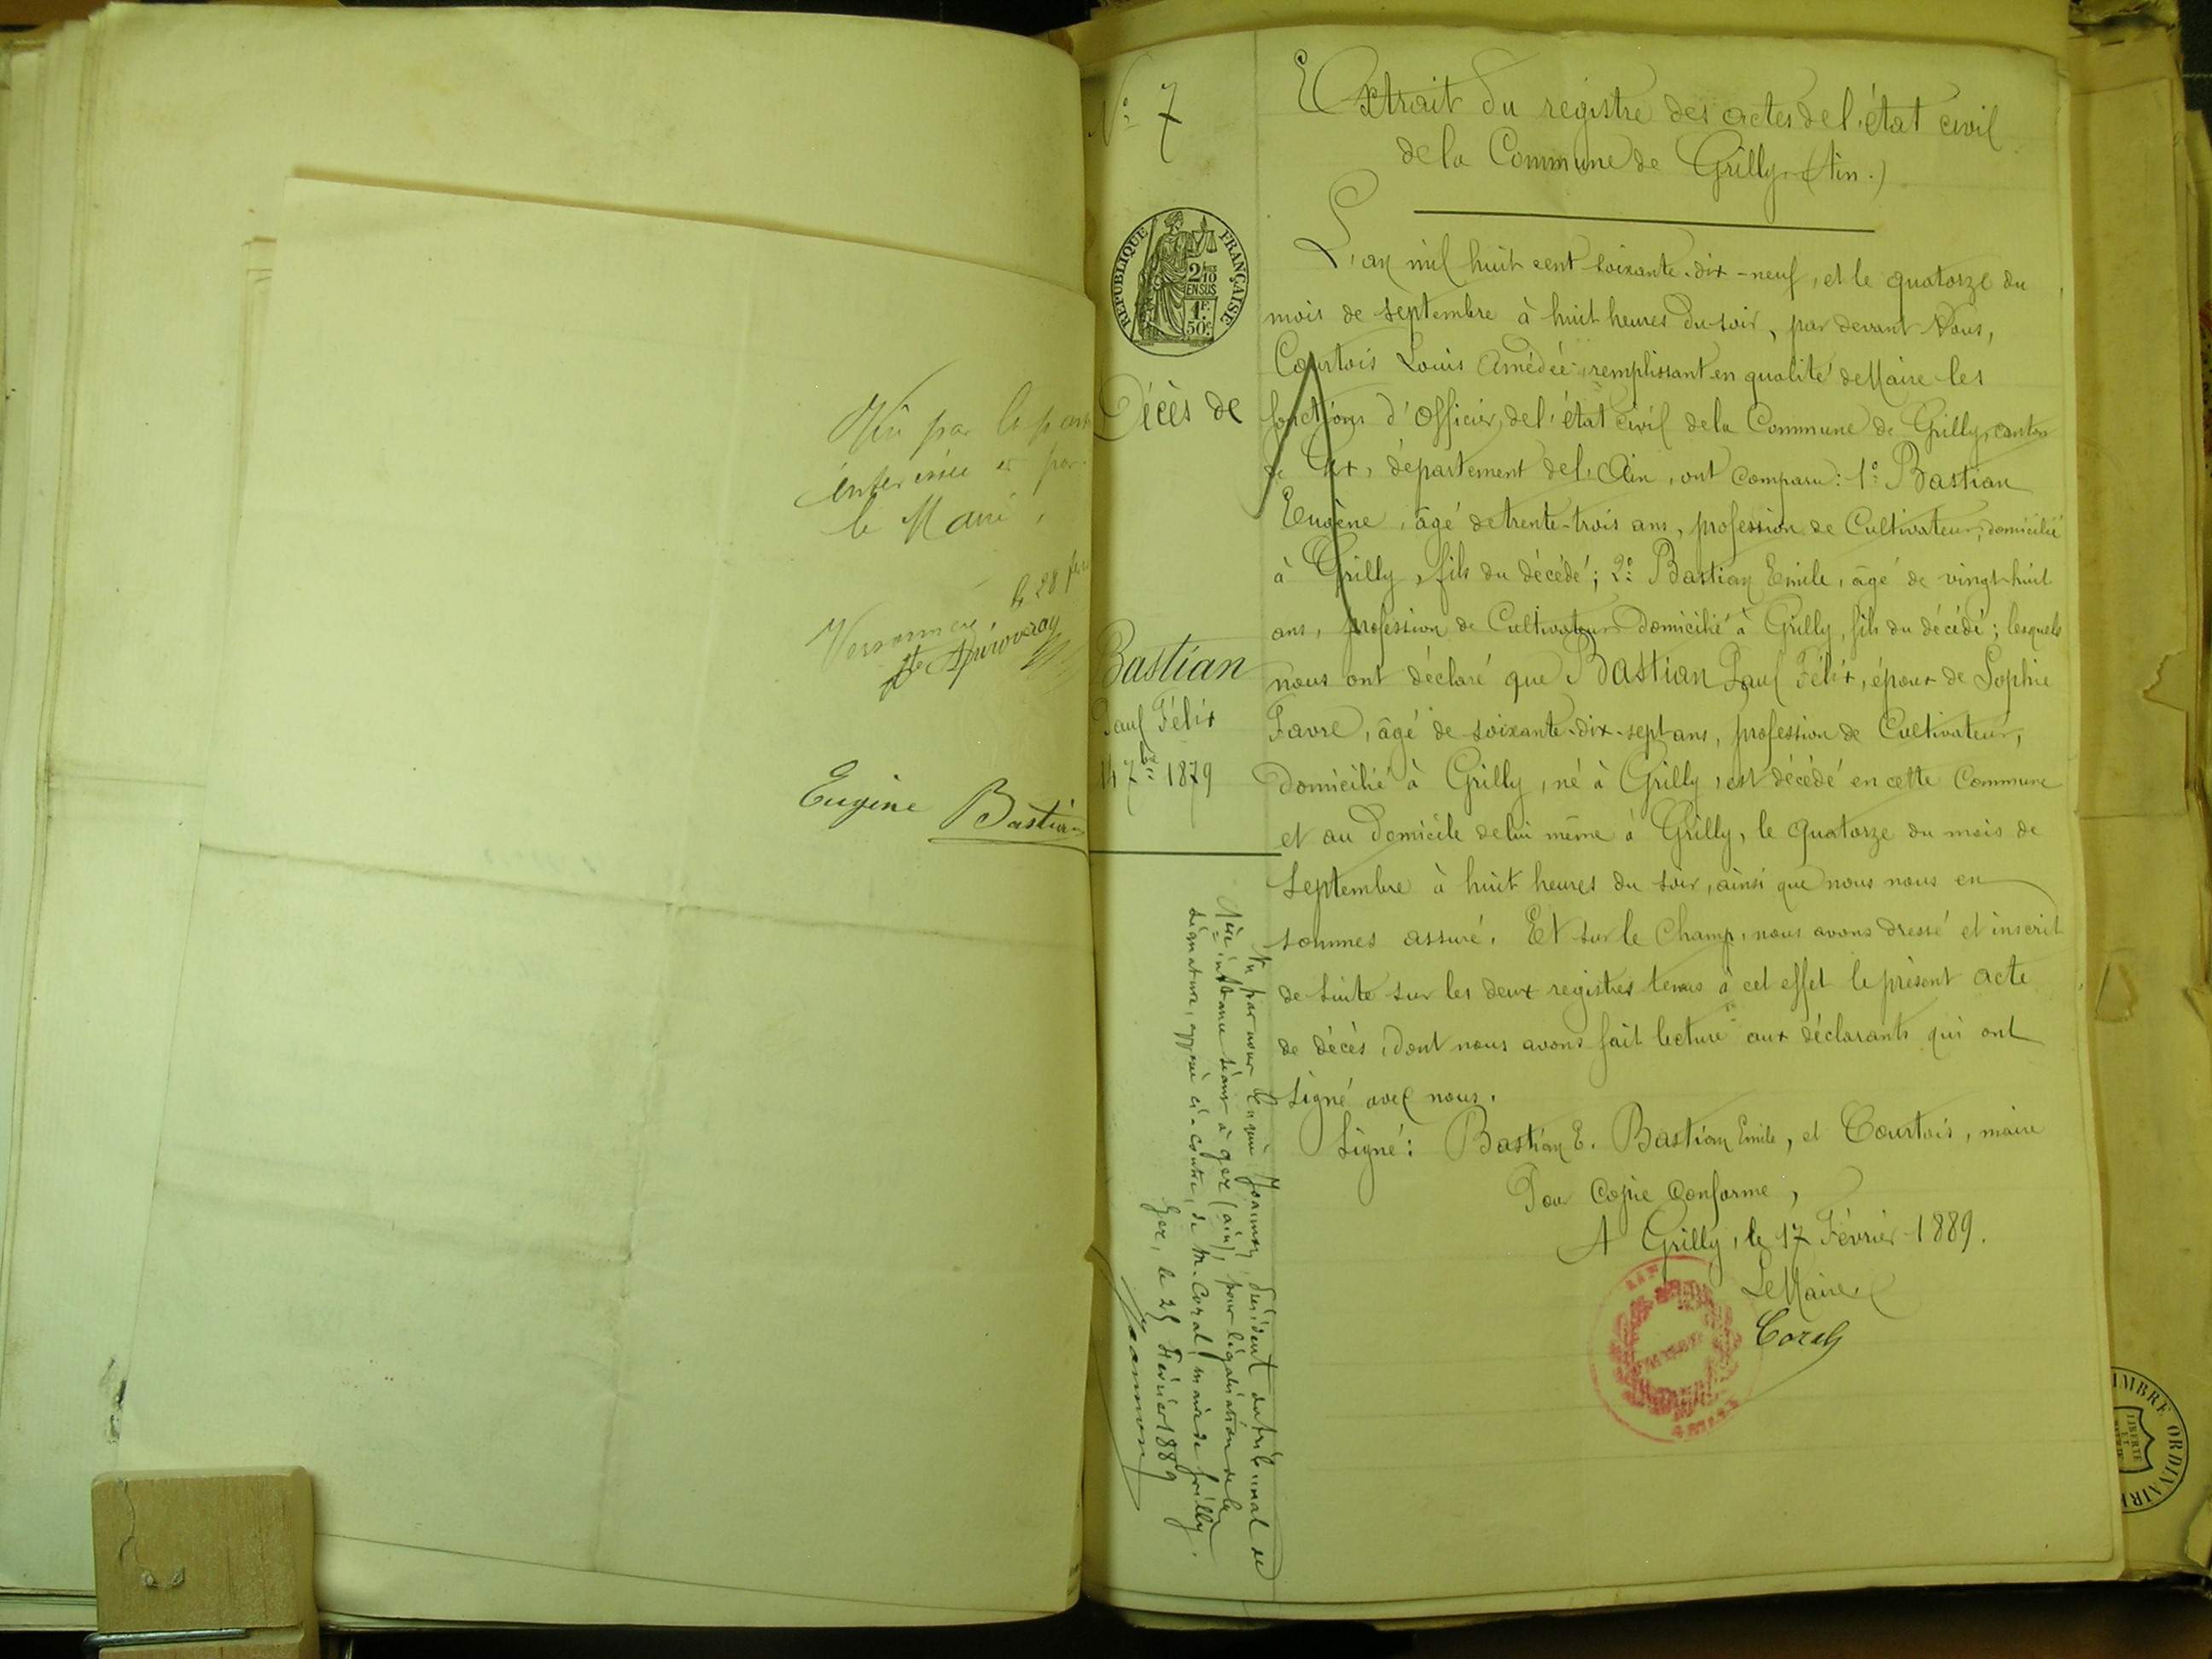 Vu par la
intéressée et par
le Maire,
le 28
Eugène Bastian
N° 7
REPUBLIQUE FRANÇAISE
2/10
EN SUS
1F.
50c.
Décès de
Bastian
Paul Félix
14 7bre 1879
Extrait du registre des actes de l'état civil
de la Commune de Grilly (Ain.)
L'an mil huit cent soixante-dix-neuf, et le quatorze du
mois de septembre à huit heures du soir, par devant Nous,
Courtois Louis Amédée, remplissant en qualité de Maire les
fonctions d'Officier de l'état civil de la Commune de Grilly, canton
de Gex, département de l'Ain, ont comparu: 1° Bastian
Eugène, âgé de trente-trois ans, profession de Cultivateur, domicilié
à Grilly, fils du décédé; 2° Bastian Emile, âgé de vingt-huit
ans, profession de Cultivateur domicilié à Grilly, fils du décédé; lesquels
nous ont déclaré que Bastian Paul Félix, époux de Sophie
Favre, âgé de soixante-dix-sept ans, profession de Cultivateur,
domicilié à Grilly, né à Grilly, est décédé en cette Commune
et au Domicile de lui même à Grilly, le quatorze du mois de
septembre à huit heures du soir, ainsi que nous nous en
sommes assuré. Et sur le champ, nous avons dressé et inscrit
de suite sur les deux registres tenus à cet effet le présent acte
de décès, dont nous avons fait lecture aux déclarants qui ont
signé avec nous.
Signé: Bastian E. Bastian Emile, et Courtois, maire
Pour Copie Conforme,
A Grilly, le 17 Février 1889.
Le Maire
Vu par nous Président du tribunal de
1ère instance séant à Gex (Ain), pour légalisation de la
signature, apposée ci-contre, de M. Coral maire de Grilly.
Gex, le 25 Février 1889
TIMBRE ORDINAIRE
LIBERTE
ET